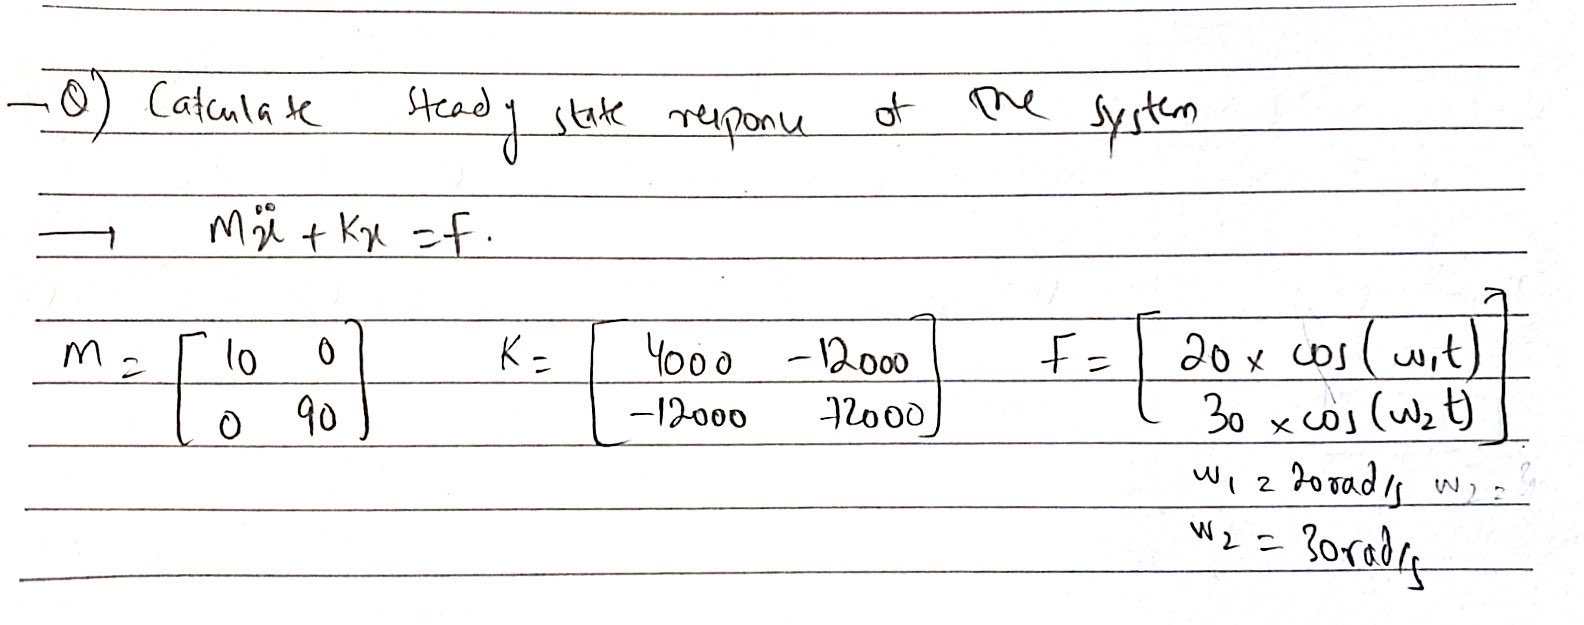 → Q) Calculate steady state response of the system
→ Mẍ + Kx = F.
M = [ 10 0 K = [ 4000 -12000 F = [ 20 × cos(ω₁t)
0 90 ] -12000 72000 ] 30 × cos(ω₂t) ]
ω₁ = 20rad/s ω₂ =
ω₂ = 30rad/s